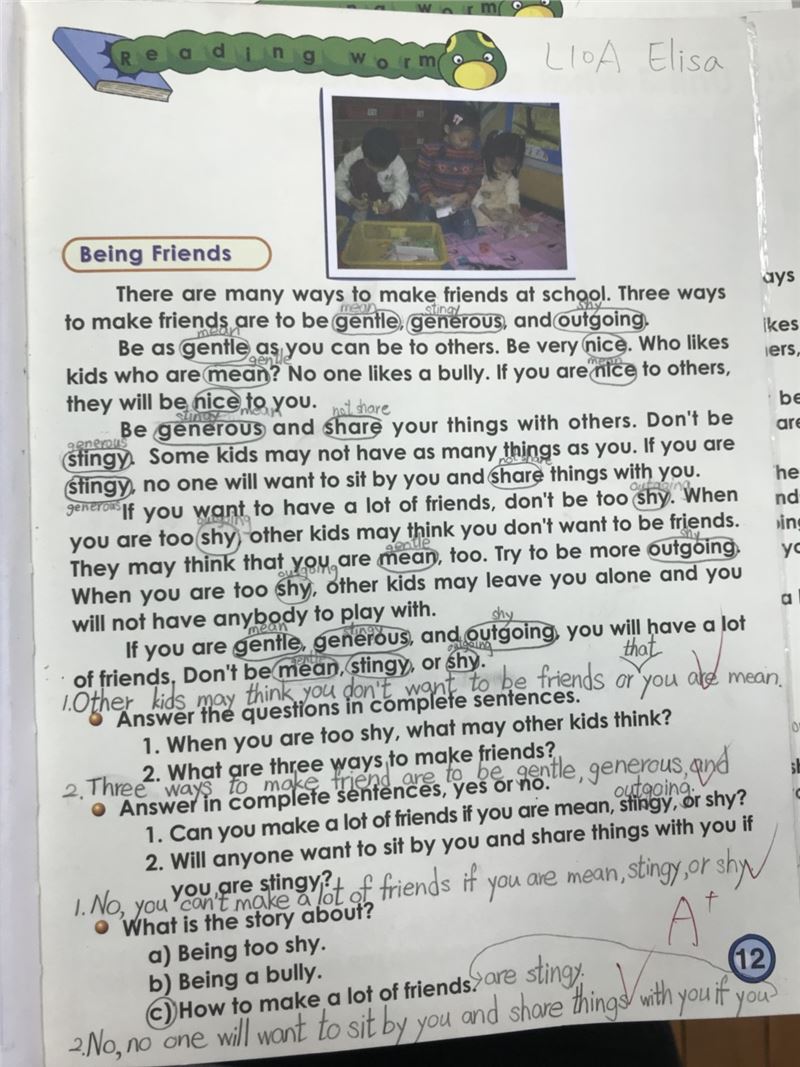 Reading worm
L10A Elisa
Being Friends
There are many ways to make friends at school. Three ways
mean stingy shy
to make friends are to be gentle, generous, and outgoing.
mean
Be as gentle as you can be to others. Be very nice. Who likes
gentle mean
kids who are mean? No one likes a bully. If you are nice to others,
they will be nice to you.
stingy mean not share
Be generous and share your things with others. Don't be
generous
stingy. Some kids may not have as many things as you. If you are
not share
stingy, no one will want to sit by you and share things with you.
generous outgoing
If you want to have a lot of friends, don't be too shy. When
outgoing
you are too shy, other kids may think you don't want to be friends.
gentle shy
They may think that you are mean, too. Try to be more outgoing.
outgoing
When you are too shy, other kids may leave you alone and you
will not have anybody to play with.
mean stingy shy
If you are gentle, generous, and outgoing, you will have a lot
gentle outgoing
of friends. Don't be mean, stingy, or shy.
that
1. Other kids may think you don't want to be friends or you are mean.
Answer the questions in complete sentences.
1. When you are too shy, what may other kids think?
2. What are three ways to make friends?
2. Three ways to make friend are to be gentle, generous, and
outgoing.
Answer in complete sentences, yes or no.
1. Can you make a lot of friends if you are mean, stingy, or shy?
2. Will anyone want to sit by you and share things with you if
you are stingy?
1. No, you can't make a lot of friends if you are mean, stingy, or shy
What is the story about?
A+
a) Being too shy.
b) Being a bully.
12
c) How to make a lot of friends.
are stingy.
2. No, no one will want to sit by you and share things with you if you